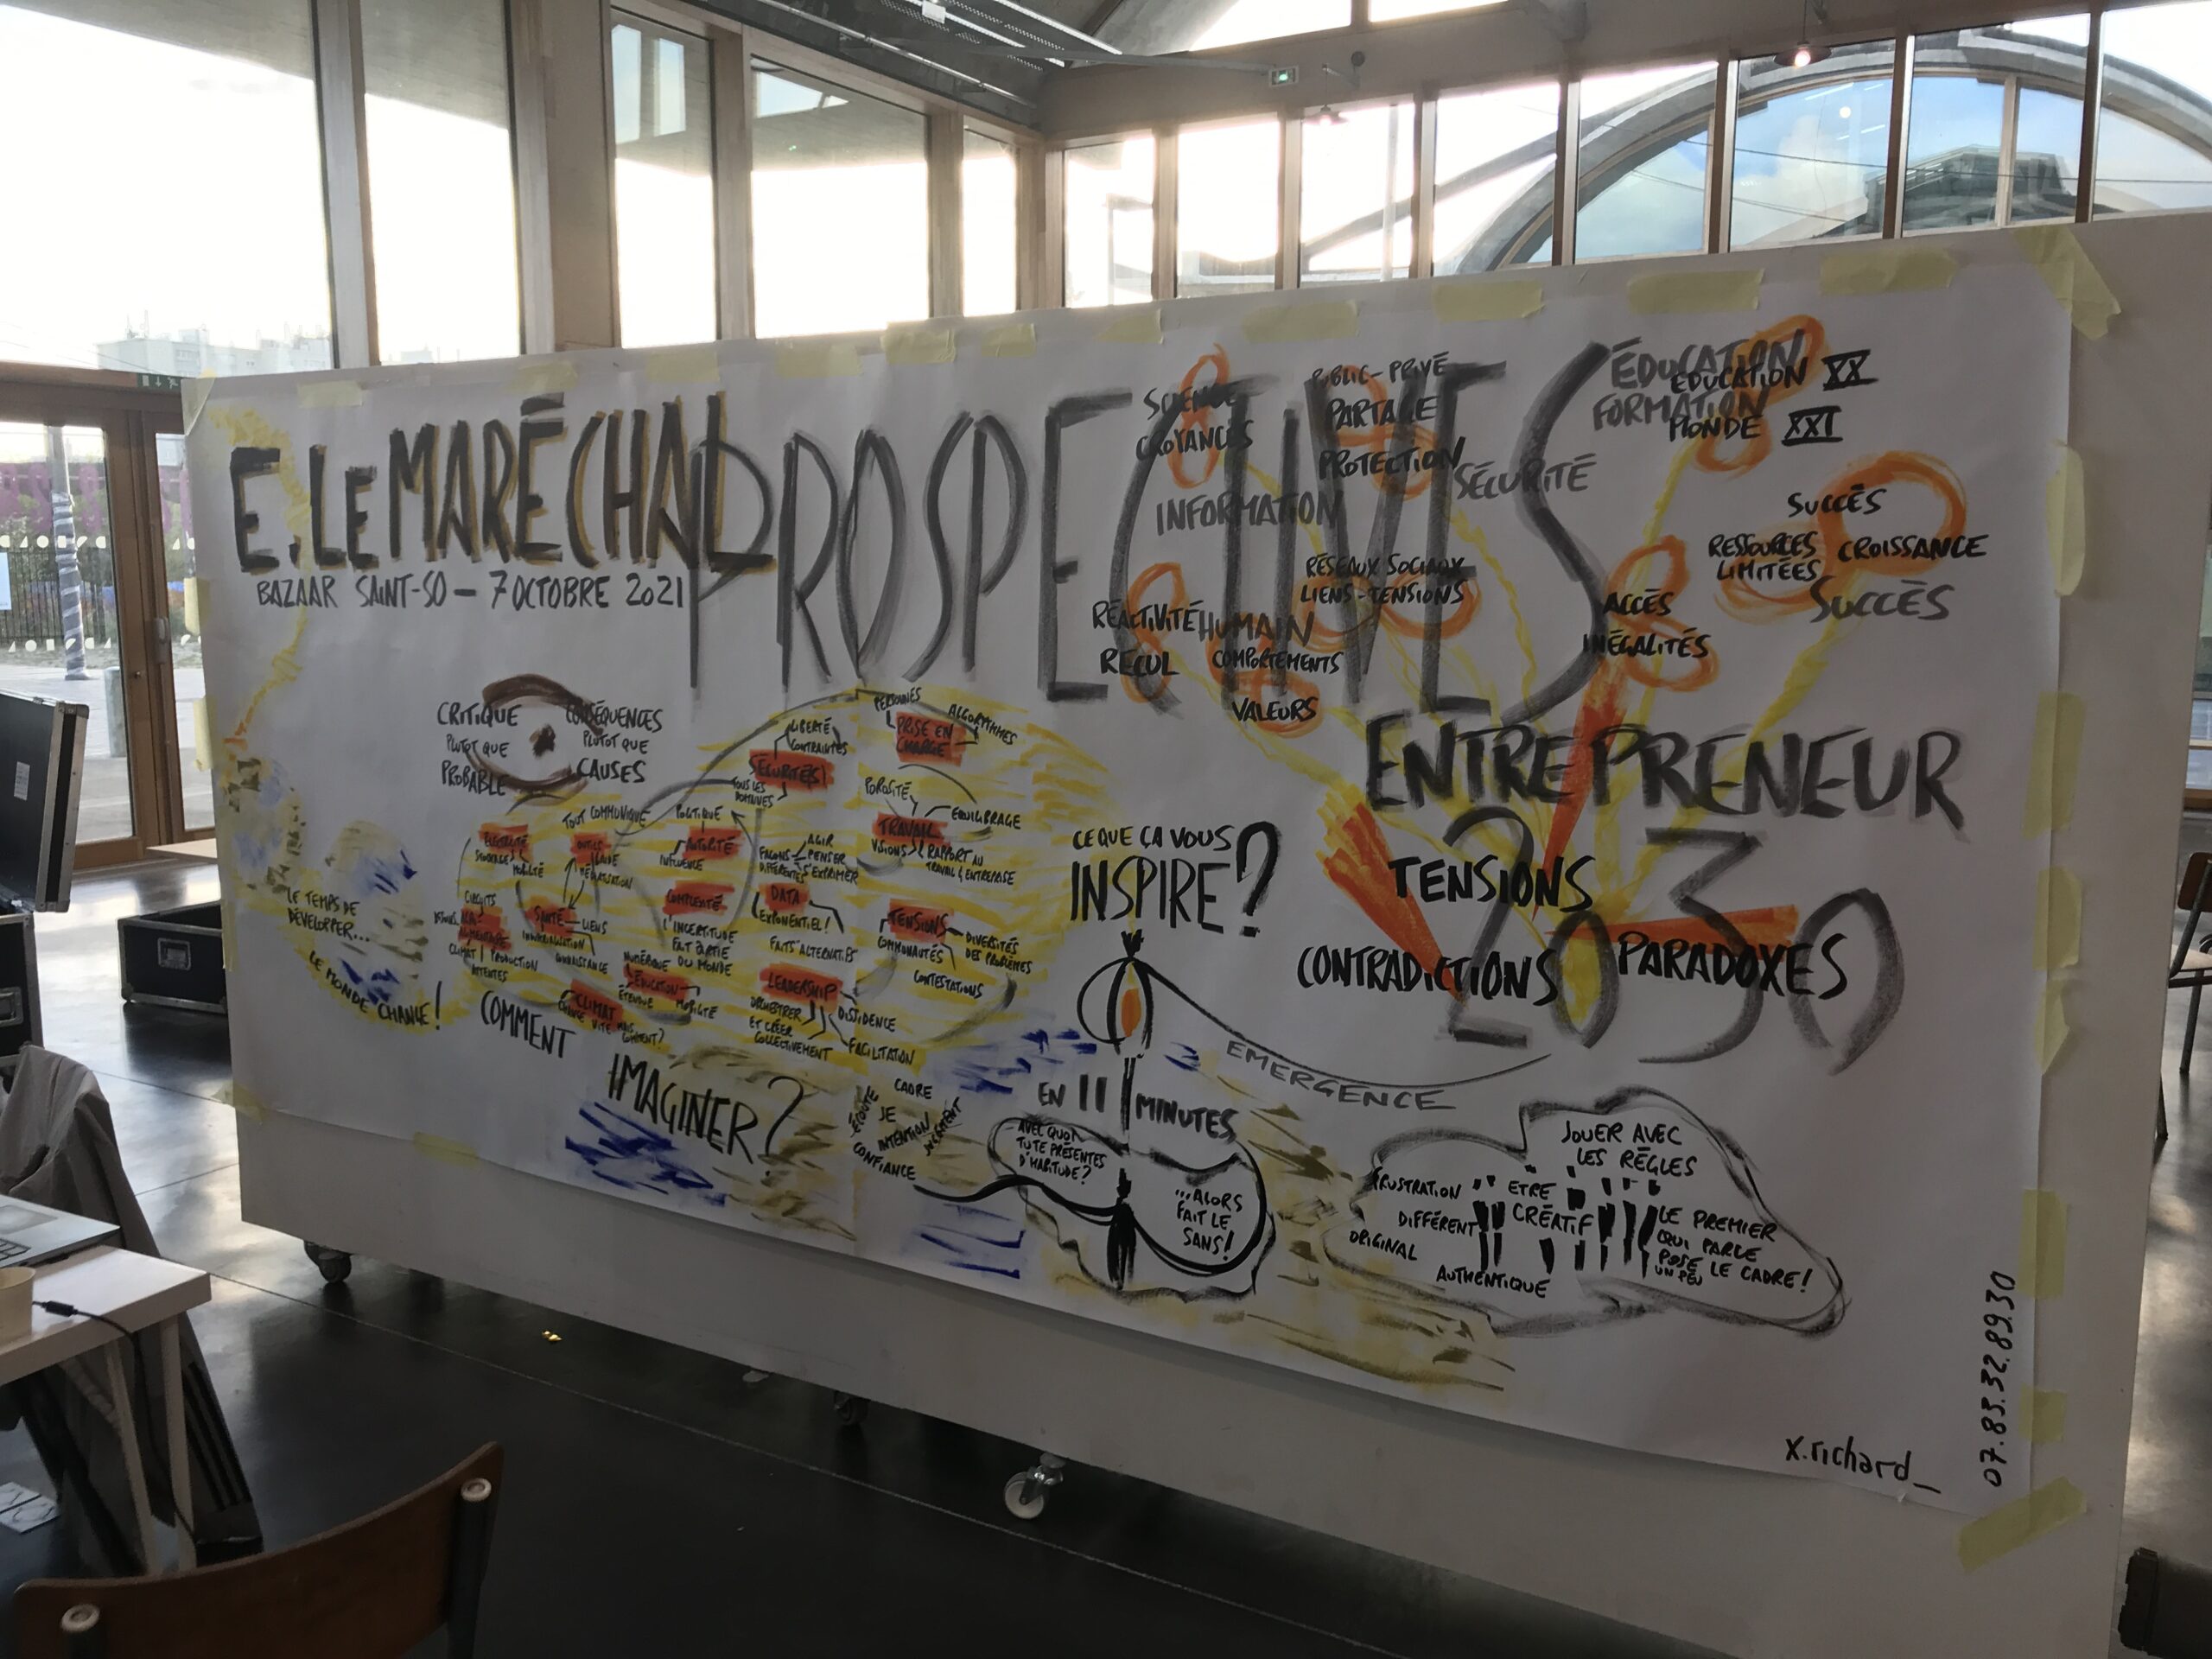 E. LE MARÉCHAL
PROSPECTIVES
BAZAAR SAINT-SO — 7 OCTOBRE 2021
SCIENCE
CROYANCES
INFORMATION
PUBLIC-PRIVÉ
PARTAGE
PROTECTION
SÉCURITÉ
ÉDUCATION
EDUCATION XX
FORMATION
MONDE XXI
SUCCÈS
RESSOURCES CROISSANCE
LIMITÉES
SUCCÈS
RÉSEAUX SOCIAUX
LIENS-TENSIONS
RÉACTIVITÉ
HUMAIN
RECUL
COMPORTEMENTS
VALEURS
ACCÈS
INÉGALITÉS
ENTREPRENEUR
2030
TENSIONS
CONTRADICTIONS
PARADOXES
CRITIQUE
PLUTOT QUE
PROBABLE
CONSÉQUENCES
PLUTOT QUE
CAUSES
LIBERTÉ
CONTRAINTES
SÉCURITÉ(S)
TOUS LES
DOMAINES
PERSONNES
PRISE EN
CHARGE
ALGORYTHMES
POROSITÉ
EQUILIBRAGE
TRAVAIL
VISIONS
RAPPORT AU
TRAVAIL & ENTREPRISE
TOUT COMMUNIQUE
POLITIQUE
AUTORITÉ
INFLUENCE
FAÇONS
DIFFÉRENTES
AGIR
PENSER
S'EXPRIMER
MOBILITÉ
OUTILS
CIRCUITS
ALIMENTAIRE
CLIMAT
PRODUCTION
ATTENTES
SANTÉ
LIENS
CONNAISSANCE
COMPLEXITÉ
L'INCERTITUDE
FAIT PARTIE
DU MONDE
DATA
EXPONENTIEL!
FAITS ALTERNATIFS
TENSIONS
COMMUNAUTÉS
DIVERSITÉS
DES PROBLÈMES
CONTESTATIONS
NUMÉRIQUE
ÉDUCATION
ÉTENDUE
MOBILITÉ
CLIMAT
CHANGE VITE MAIS
COMMENT?
LEADERSHIP
ORCHESTRER
ET CRÉER
COLLECTIVEMENT
DISSIDENCE
FACILITATION
LE TEMPS DE
DÉVELOPPER...
LE MONDE CHANGE!
COMMENT
IMAGINER?
CADRE
ÉCOUTE
JE
INTENTION
JUGEMENT
CONFIANCE
CE QUE ÇA VOUS
INSPIRE?
EMERGENCE
EN 11 MINUTES
AVEC QUOI
TU TE PRÉSENTES
D'HABITUDE?
...ALORS
FAIT LE
SANS!
JOUER AVEC
LES RÈGLES
FRUSTRATION
ETRE
CRÉATIF
DIFFÉRENT
ORIGINAL
AUTHENTIQUE
LE PREMIER
QUI PARLE
POSE LE CADRE!
UN PEU
x.richard_
07.83.32.89.30